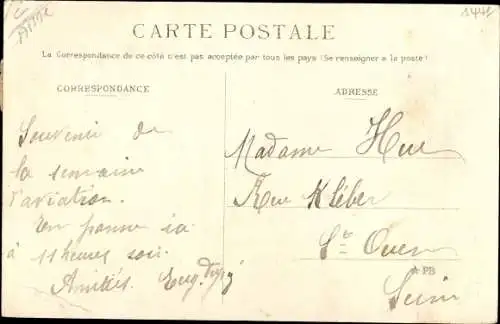 1442
CARTE POSTALE
La Correspondance de ce côté c'est pas acceptée par tous les pays (Se renseigner à la poste)
CORRESPONDANCE
ADRESSE
Souvenir de
la semaine
d'aviation.
En panne
à 11 heures soir.
Amitiés. Eug.
Madame Hue
Rue Kléber
St Ouen
★ PB
Seine